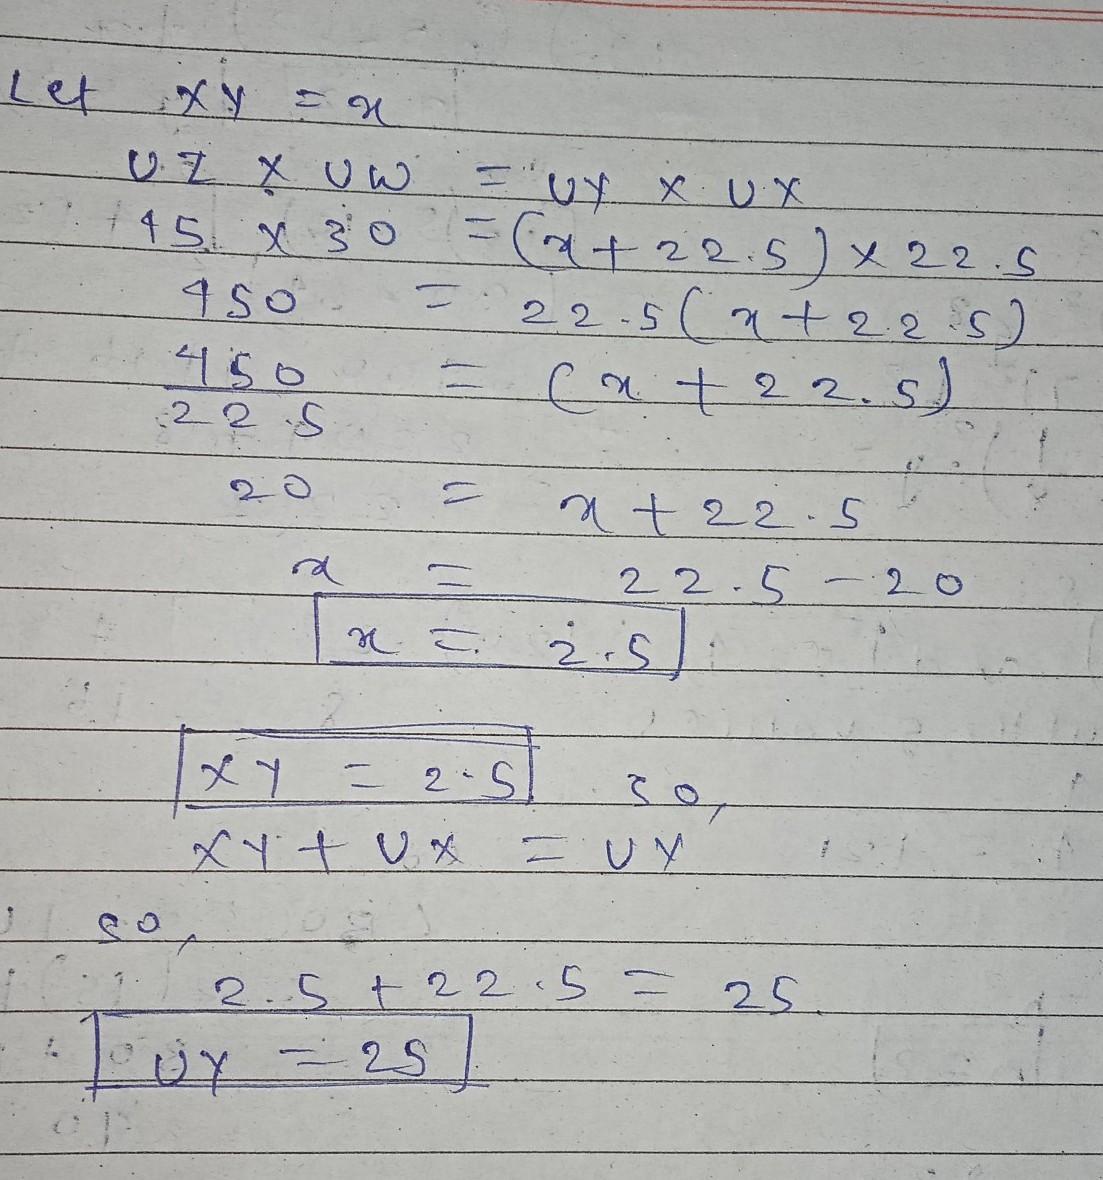 Let XY = x
UZ × UW = UY × UX
15 × 30 = (x + 22.5) × 22.5
450 = 22.5 (x + 22.5)
450/22.5 = (x + 22.5)
20 = x + 22.5
x = 22.5 - 20
x = 2.5
XY = 2.5 so,
XY + UX = UY
so,
2.5 + 22.5 = 25
UY = 25